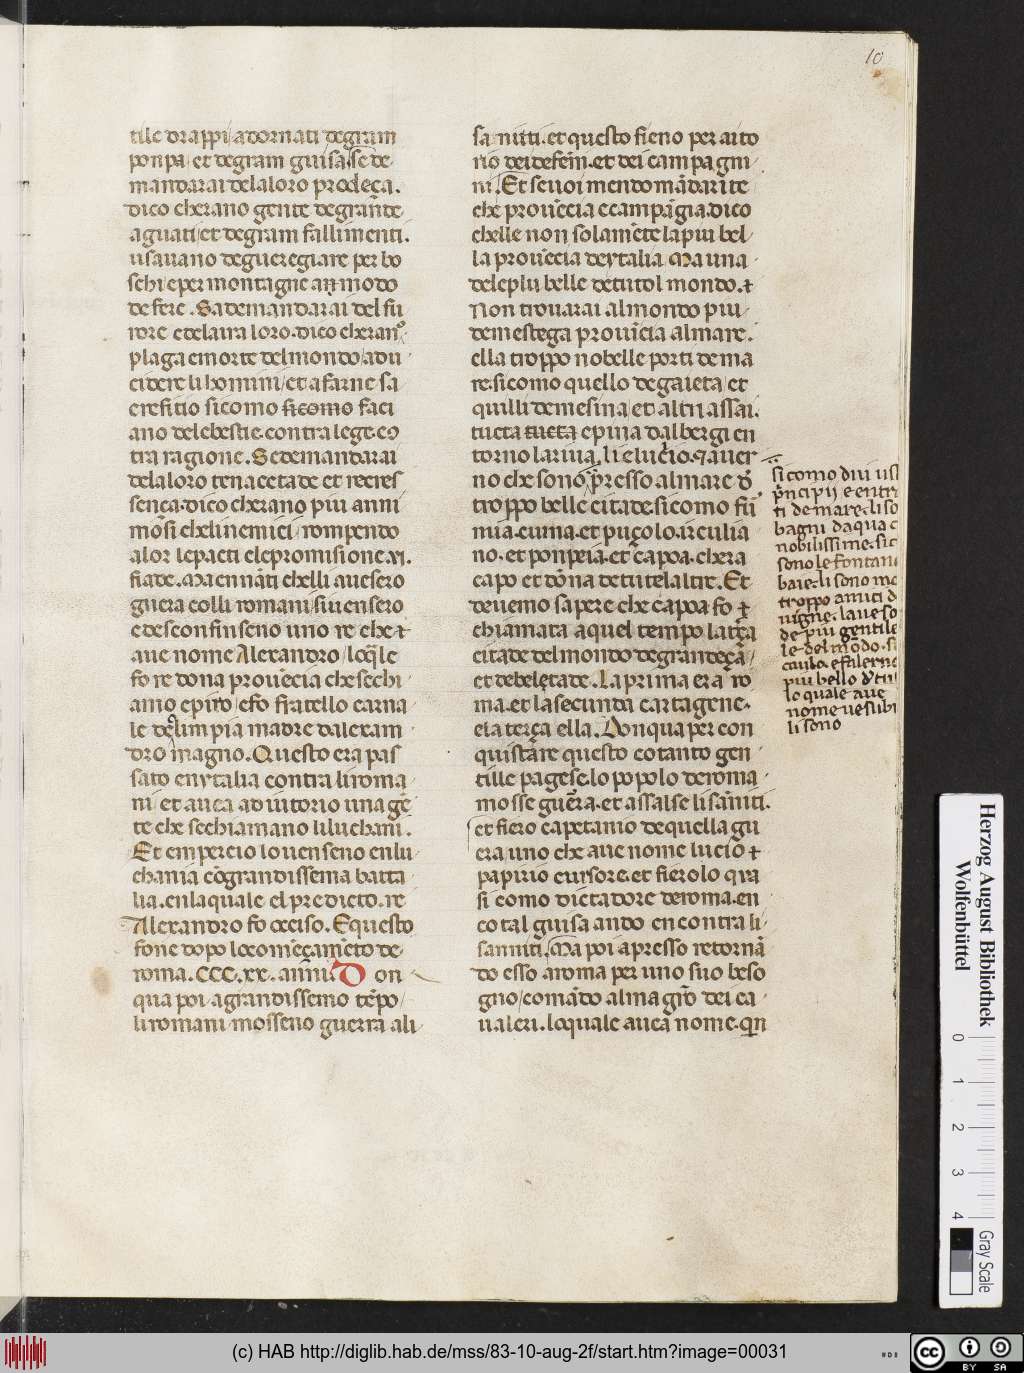 10
tile drappi adornati degram
ponpa et degram guisa. se de
mandarai delaloro prodeça.
dico cherano gente degrande
aguati et degram fallimenti.
usavano degueregiare per bo
schi e per montagne an modo
de fere. Sademandarai del fu
rore edelaira loro. dico cheran°
plaga emorte delmondo adu
cidere li homini et afarne sa
crefitio sicomo ficomo faci
ano delebestie. contra lege. cō
tra ragione. Sedemandarai
delaloro tenacetade et recres
sença. dico cherano piu anni
mōsi chelinemici rompendo
alor lepacti elepromisione. vi.
fiade. Ma ennāti chelli avesero
guera colli romani si vensero
edesconfinseno uno re che ⁊
ave nome Alexandro loq̄le
fo re dona provēcia che sechi
amo epiro efo fratello carna
le de olimpia madre dalexam
dro magno. Questo era pas
sato enytalia contra li roma
ni et avea ad iutorio una gē
te che sechiamano liluchani.
Et empercio lo venseno enlu
chania cōgrandissema batta
lia. enlaquale el predicto. re
Alexandro fo occiso. E questo
fone dopo locomēçamēto de
roma. CCC. xx. anni. Don
qua poi agrandissemo tēpo
li romani mosseno guerra ali
sanniti. et questo fieno per aito
rio dei defem̄. et dei campagni
ni. Et se voi mendomādarite
che provēcia ecampāgia. dico
chelle non solamēte lapiu bel
la provēcia deytalia. Ma una
deleplu belle detutol mondo. ⁊
Non trovarai almondo piu
demestega provīcia almare.
ella troppo nobelle porti de ma
re. sicomo quello degaieta et
quilli demesina et altri assai.
tucta tucta epina dalbergi en
torno lariva.
no che sono p̄resso almare d̄
troppo belle citade. sicomo fu
mia. cuma. et puçolo.
no. et ponpeia. et capoa. chera
capo et dōna detutelaltre. Et
devemo sapere che capoa fo ⁊
chiamata aquel tempo laterça
citade delmondo degrandeçā
et debeletade. La prima era ro
ma. et lasecunda cartagene.
ela terça ella. Donqua per con
quistare questo cotanto gen
tille pagese. lo popolo deroma
mosse guēra. et assalse lisāniti.
et fiero capetanio dequella gu
era uno che ave nome lucio ⁊
papirio cursore. et fierolo qua
si como dictadore deroma. en
cotal guisa ando encontra li
sanniti. Ma poi apresso retornā
do esso aroma per uno suo beso
gno comādo almagr̄o dei ca
valeri. loquale avea nome. qn
si como divi us
p̄ncipii e entra
ti demare. li so
bagni daqua c
nobilissime. sic
sono le fontan
baie. li sono mo
troppo amici d
vigne. lave so
de piu gentile
le del mōdo. si
caulo. e falerno
piu bello d̄ tu
lo quale ave
nome vesubi
li sono
Herzog August Bibliothek
Wolfenbüttel
0 1 2 3 4
Gray Scale
(c) HAB http://diglib.hab.de/mss/83-10-aug-2f/start.htm?image=00031
cc BY SA